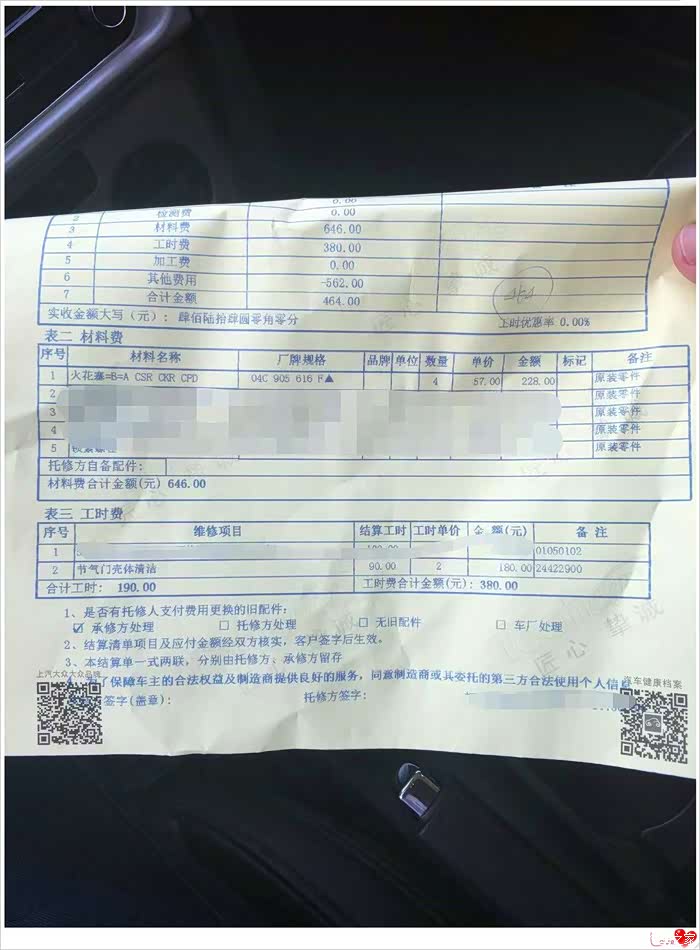 0.00
2 检测费 0.00
3 材料费 646.00
4 工时费 380.00
5 加工费 0.00
6 其他费用 -562.00
7 合计金额 464.00
464
实收金额大写（元）： 肆佰陆拾肆圆零角零分 工时优惠率 0.00%
表二 材料费
序号 材料名称 厂牌规格 品牌 单位 数量 单价 金额 标记 备注
1 火花塞=B=A CSR CKR CPD 04C 905 616 F▲ 4 57.00 228.00 原装零件
2 原装零件
3 原装零件
4 原装零件
5 原装零件
托修方自备配件：
材料费合计金额(元) 646.00
表三 工时费
序号 维修项目 结算工时 工时单价 金 额(元) 备 注
1 01050102
2 节气门壳体清洁 90.00 2 180.00 24422900
合计工时： 190.00 工时费合计金额(元)： 380.00
1、是否有托修人支付费用更换的旧配件：
☑ 承修方处理 □ 托修方处理 □ 无旧配件 □ 车厂处理
2、结算清单项目及应付金额经双方核实，客户签字后生效。
3、本结算单一式两联，分别由托修方、承修方留存
为了保障车主的合法权益及制造商提供良好的服务，同意制造商或其委托的第三方合法使用个人信息
上汽大众大众品牌
汽车健康档案
签字(盖章)： 托修方签字：
匠心 挚诚
匠心 挚诚
Love